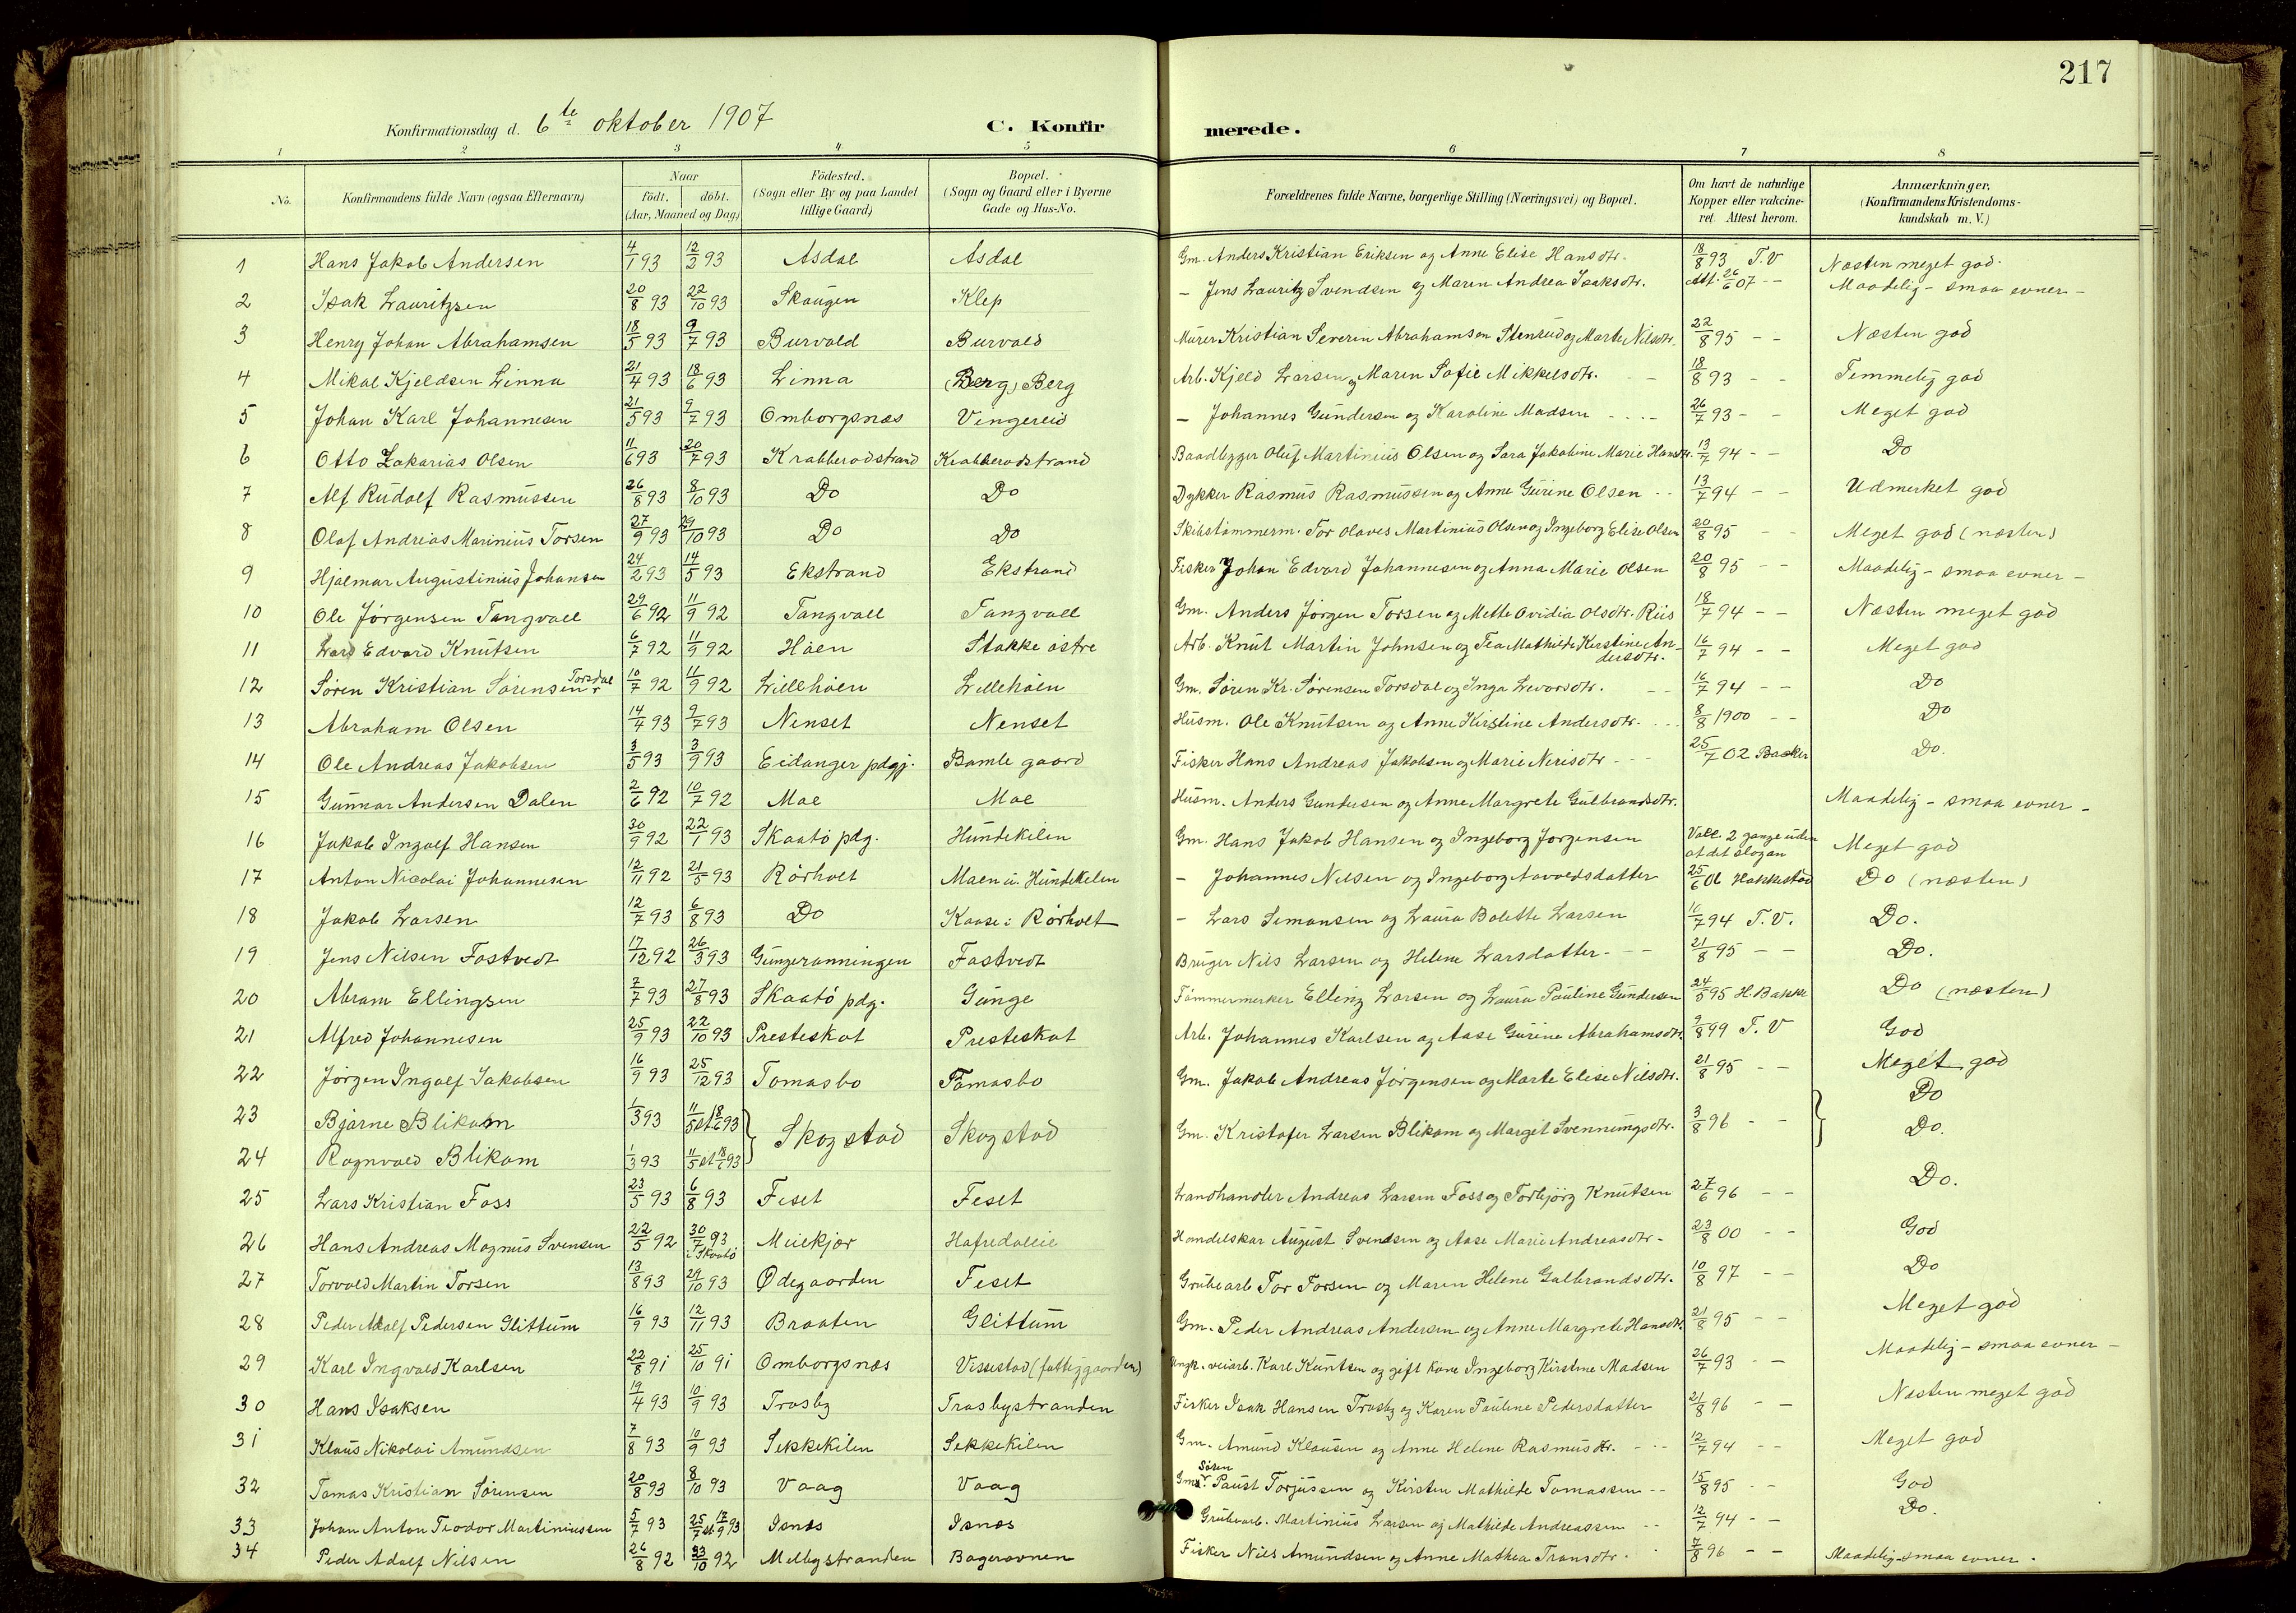 217
Konfirmationsdag d. 6te oktober 1907
C. Konfirmerede.
1 2 3 4 5 6 7 8
No. Konfirmandens fulde Navn (ogsaa Efternavn) Naar født. døbt. (Aar, Maaned og Dag) Fødested. (Sogn eller By og paa Landet tillige Gaard) Bopæl. (Sogn og Gaard eller i Byerne Gade og Hus-No. Forældrenes fulde Navne, borgerlige Stilling (Næringsvei) og Bopæl. Om havt de naturlige Kopper eller vakcineret. Attest herom. Anmærkninger. (Konfirmandens Kristendomskundskab m. V.)
1 Hans Jakob Andersen 4/1 93 12/2 93 Asdal Asdal Gm. Anders Kristian Eriksen og Anne Elise Hansdtr. 18/8 93 T. V Næsten meget god.
2 Isak Lauritzsen 20/8 93 22/10 93 Skaugen Klep – Jens Lauritz Svendsen og Maren Andrea Isaksdtr. Att. 26/6 07 - - Maadelig - smaa evner -
3 Henry Johan Abrahamsen 18/5 93 9/7 93 Burvald Burvald Murer Kristian Severin Abrahamsen Stensrud og Marte Nilsdtr. 22/8 95 - - Næsten god
4 Mikal Kjeldsen Linna 21/4 93 18/6 93 Linna (Berg) Berg Arb. Kjeld Larsen og Maren Sofie Mikkelsdtr. 18/8 93 - - Temmelig god
5 Johan Karl Johannesen 21/5 93 9/7 93 Omborgsnæs Vingereid – Johannes Gundersen og Karoline Madsen 26/7 93 - - Meget god
6 Otto Zakarias Olsen 11/6 93 20/7 93 Krabberødstrand Krabberødstrand Baadbygger Oluf Martinius Olsen og Sara Jakobine Marie Hansdtr. 13/7 94 - - Do
7 Alf Rudolf Rasmussen 26/8 93 8/10 93 Do Do Dykker Rasmus Rasmussen og Anne Gurine Olsen 13/7 94 - - Udmerket god
8 Olaf Andreas Marinius Torsen 27/9 93 29/10 93 Do Do Skibstømmerm. Tor Olaves Martinius Olsen og Ingeborg Elise Olsen 20/8 95 - - Meget god (næsten)
9 Hjalmar Augustinius Johansen 24/2 93 14/5 93 Ekstrand Ekstrand Fisker Johan Edvard Johannesen og Anna Marie Olsen 20/8 95 - - Maadelig - smaa evner -
10 Ole Jørgensen Tangvall 29/6 92 11/9 92 Tangvall Tangvall Gm. Anders Jørgen Torsen og Mette Ovidia Olsdtr. Riis 18/7 94 - - Næsten meget god
11 Lars Edvard Knutsen 6/7 92 11/9 92 Haen Stokke østre Arb. Knut Martin Johnsen og Tea Mathilde Kirstine Andersdtr. 16/7 94 - - Meget god
12 Søren Kristian Sørensen Torsdal 10/7 92 11/9 92 Lillehaen Lillehaen Gm. Søren Kr. Sørensen Torsdal og Inga Levorsdtr. 16/7 94 - - Do
13 Abraham Olsen 14/4 93 9/7 93 Nenset Nenset Husm. Ole Knutsen og Anne Kirstine Andersdtr. 8/8 1900 - - Do
14 Ole Andreas Jakobsen 3/5 93 3/9 93 Eidanger pdgj. Bamle gaard Fisker Hans Andreas Jakobsen og Marie Nerisdtr 25/7 02 Do.
15 Gunnar Andersen Dalen 2/6 92 10/7 92 Moe Moe Husm. Anders Gundersen og Anne Margrete Gulbrandsdtr. Maadelig - smaa evner -
16 Jakob Ingolf Hansen 30/9 92 22/1 93 Skaatø pdg. Hundekilen Gm. Hans Jakob Hansen og Ingeborg Jørgensen Vacc. 2 gange uden at det slog an Meget god
17 Anton Nicolai Johannesen 12/11 92 21/5 93 Rørholt Maen u. Hundekilen – Johannes Nilsen og Ingeborg Aavoldsdatter 25/6 01 Hakkestad Do (næsten)
18 Jakob Larsen 12/7 93 6/8 93 Do Kaase i Rørholt – Lars Simonsen og Laura Bolette Larsen 11/7 94 T. V. Do.
19 Jens Nilsen Fostvedt 17/12 92 26/3 93 Gungeranningen Fostvedt Bruger Nils Larsen og Helene Larsdatter 21/8 95 - - Do.
20 Abram Ellingsen 7/7 93 27/8 93 Skaatø pdg. Gunge Tømmermerker Elling Larsen og Laura Pauline Gundersen 24/5 95 H. Bakke Do (næsten)
21 Alfred Johannesen 25/9 93 22/10 93 Presteskot Presteskot Arb. Johannes Karlsen og Aase Gurine Abrahamsdtr. 9/8 99 T. V God
22 Jørgen Ingolf Jakobsen 16/9 93 25/12 93 Tomasbo Tomasbo Gm. Jakob Andreas Jørgensen og Marte Elise Nilsdtr. 21/8 95 - - Meget god
23 Bjarne Blikom 1/3 93 11/5 st 18/6 93 Skogstad Skogstad Gm. Kristofer Larsen Blikom og Margit Svennungsdtr. 3/8 96 - - Do
24 Ragnvald Blikom 1/3 93 11/5 st 18/6 93 Do.
25 Lars Kristian Foss 23/5 93 6/8 93 Feset Feset Landhandler Andreas Larsen Foss og Torbjørg Knutsen 27/6 96 - - Do.
26 Hans Andreas Magnus Svensen 22/5 92 30/7 93 i Skaatø Meiekjær Hafredaleie Handelskar August Svendsen og Aase Marie Andreasdtr 23/8 00 - - God
27 Torvald Martin Torsen 13/8 93 29/10 93 Ødegaarden Feset Grubearb Tor Torsen og Maren Helene Gulbrandsdtr. 10/8 97 - - Do
28 Peder Adolf Pedersen Glittum 16/9 93 12/11 93 Braaten Glittum Gm. Peder Andreas Andersen og Anne Margrete Hansdtr. 21/8 95 - - Meget god
29 Karl Ingvald Karlsen 22/8 91 25/10 91 Omborgsnæs Vissestad (fattiggaarden) Ungk. veiarb. Karl Kuntsen og gift kone Ingeborg Kirstine Madsen 26/7 93 - - Maadelig - smaa evner -
30 Hans Isaksen 19/4 93 10/9 93 Trosby Trosbystranden Fisker Isak Hansen Trosby og Karen Pauline Pedersdatter 21/8 96 - - Næsten meget god
31 Klaus Nikolai Amundsen 7/8 93 10/9 93 Sekkekilen Sekkekilen Gm. Amund Klausen og Anne Helene Rasmusdtr. 12/7 94 - - Meget god
32 Tomas Kristian Sørensen 20/8 93 8/10 93 Vaag Vaag Gm. Søren Paust Torjussen og Kirsten Mathilde Tomassen 15/8 95 - - God
33 Johan Anton Teodor Martiniussen 5/7 93 25/7 st 17/9 93 Isnæs Isnæs Grubearb. Martinius Larsen og Mathilde Andreassen 12/7 94 - - Do.
34 Peder Adolf Nilsen 26/8 92 23/10 92 Melbystranden Bogeravnen Fisker Nils Amundsen og Anne Mathea Transdtr. 7/8 96 - - Maadelig - smaa evner.